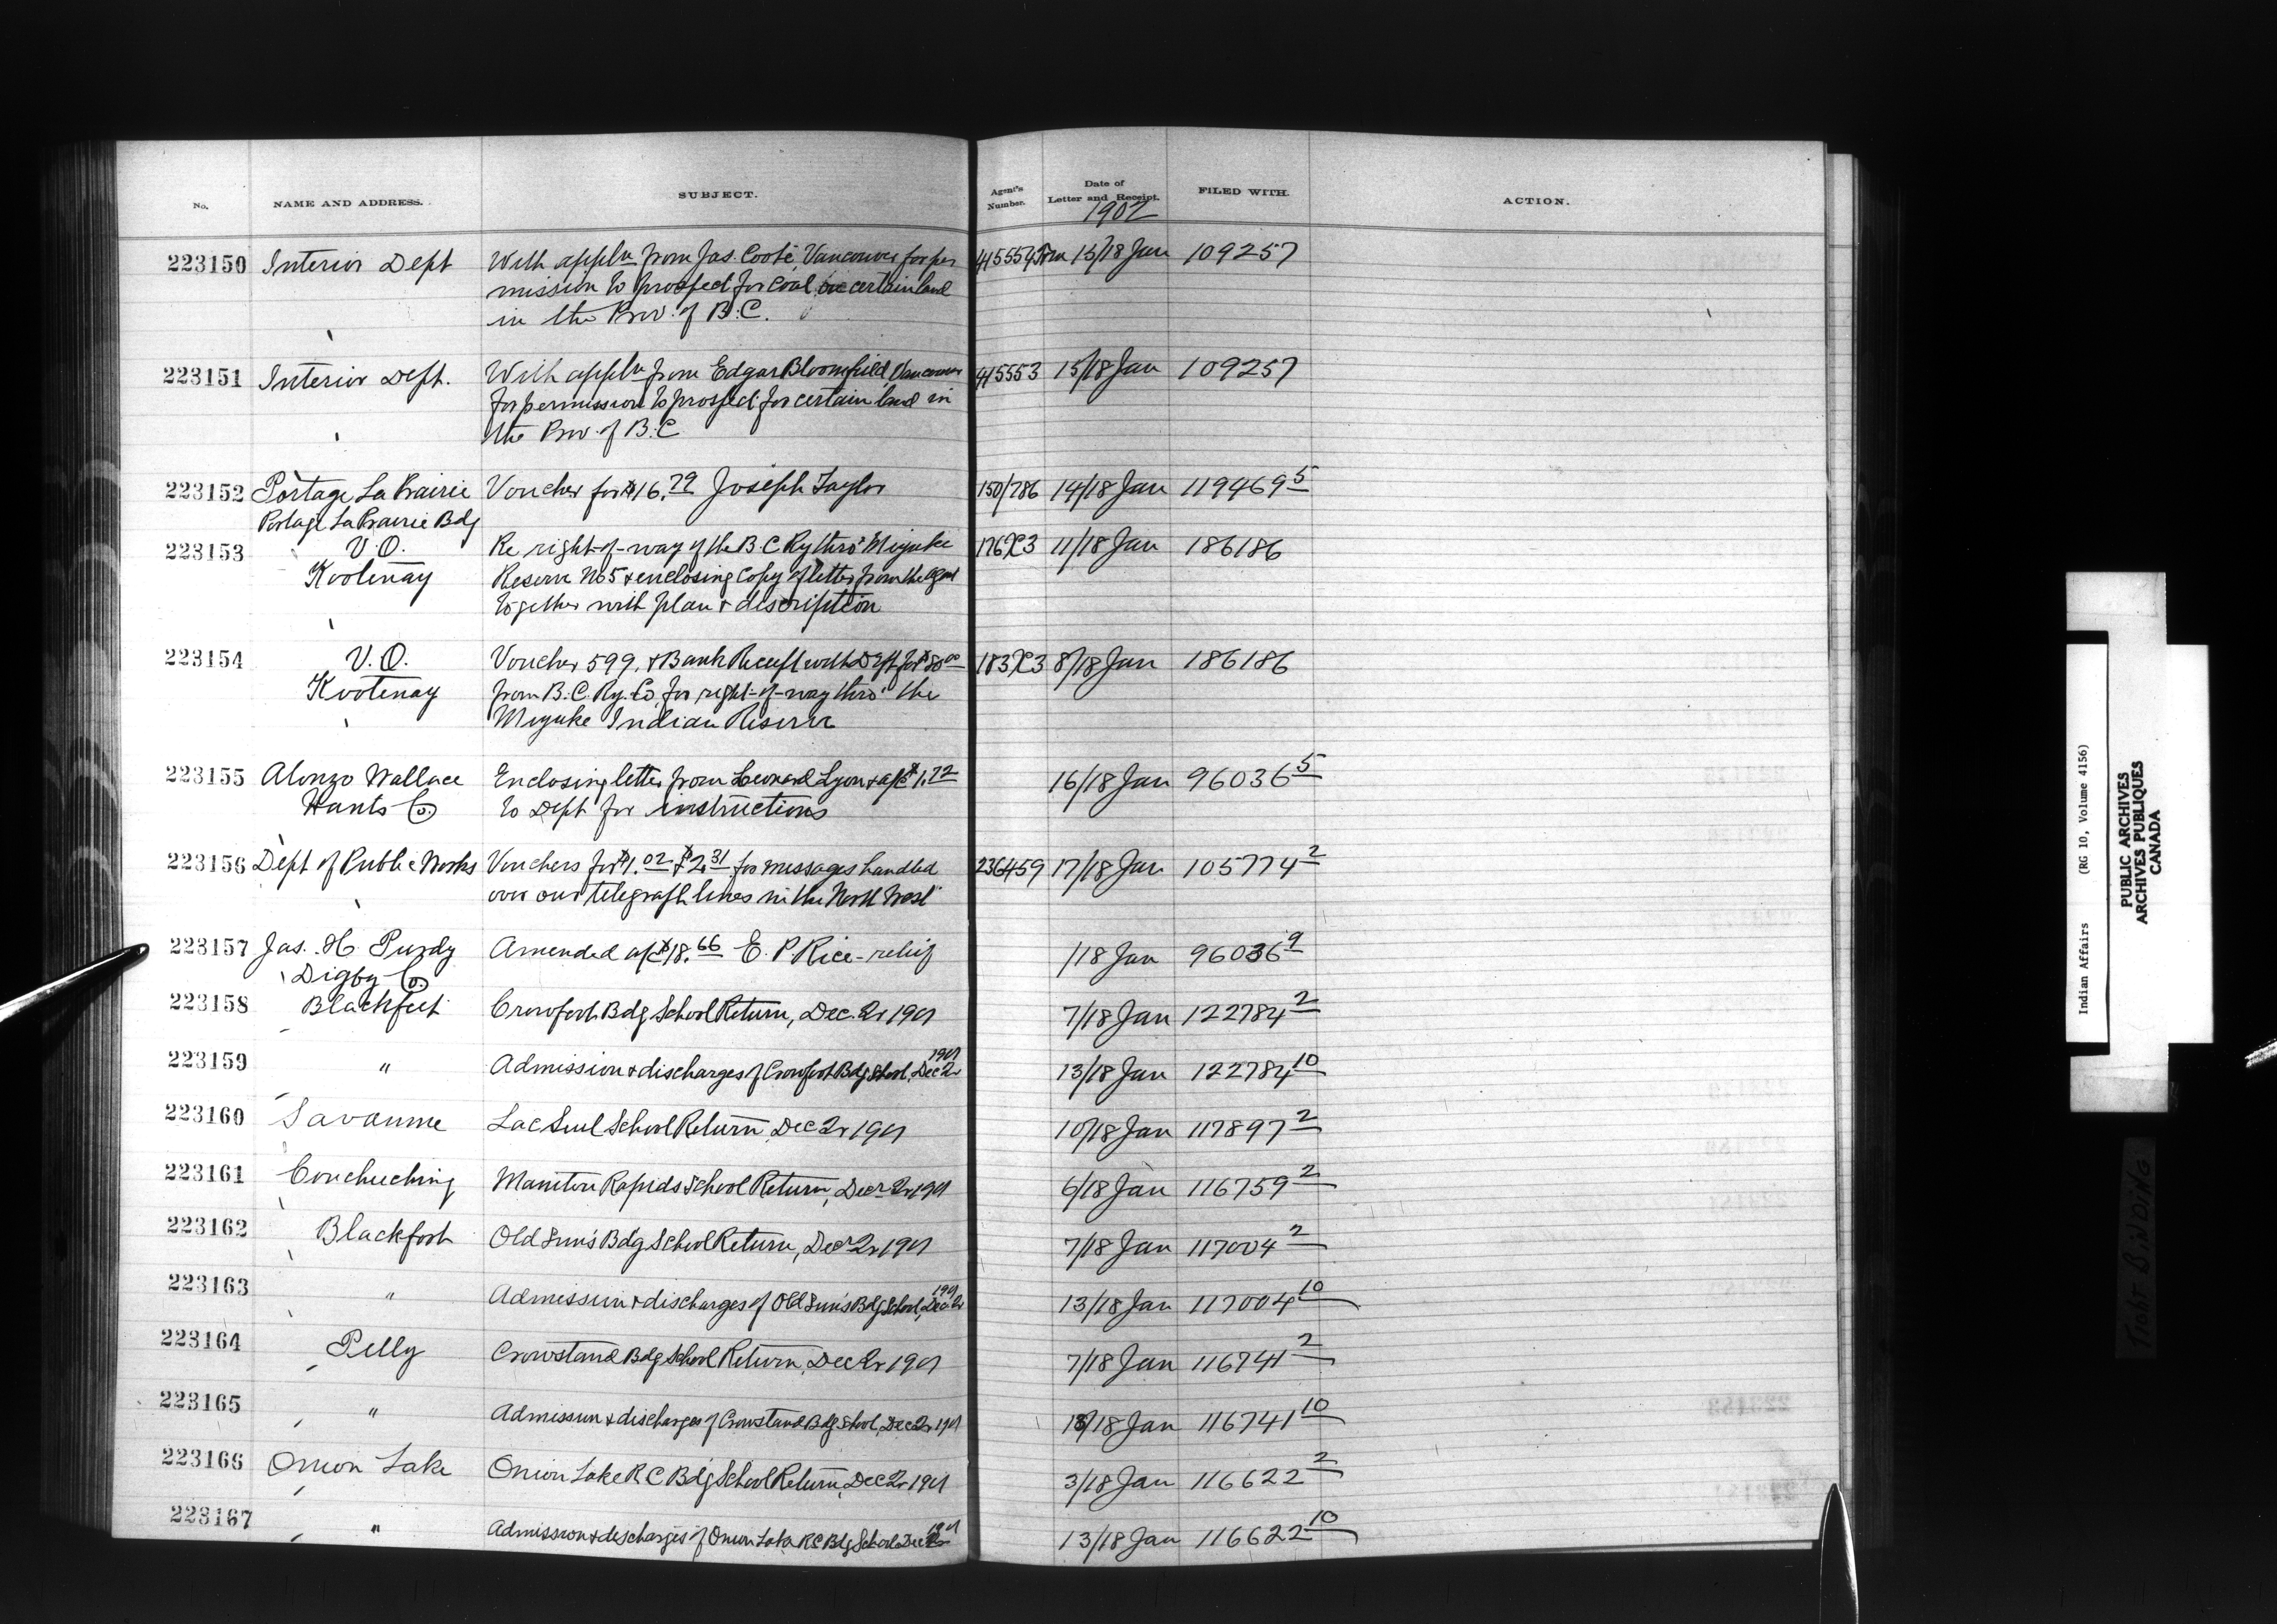 No. NAME AND ADDRESS. SUBJECT. Agent's Number. Date of Letter and Receipt. FILED WITH. ACTION.
1902
223150 Interior Dept With appln from Jas. Coote, Vancouver for per 415554 15/18 Jan 109257
mission to prospect for coal on certain land
in the Prov. of B.C.
223151 Interior Dept. With appln from Edgar Bloomfield, Vancouver 415553 15/18 Jan 109257
for permission to prospect for certain land in
the Prov. of B.C
223152 Portage La Prairie Voucher for $16.79 Joseph Taylor 150/786 14/18 Jan 119469 5
Portage La Prairie Bdg
223153 V.O. Re right-of-way of the B.C Ry thro' Miyuke 176X3 11/18 Jan 186186
Kootenay Reserve No 5 & enclosing copy of letter from the agent
together with plan & description
223154 V.O. Voucher 599. & Bank Receipt with Dft for $80.00 183X3 8/18 Jan 186186
Kootenay from B.C. Ry. Co. for right-of-way thro' the
Miyuke Indian Reserve
223155 Alonzo Wallace Enclosing letter from Leonard Lyon & a/c $1.72 16/18 Jan 96036 5
Hants Co. to Dept for instructions
223156 Dept of Public Works Vouchers for $1.02 & $2.31 for messages handled 236459 17/18 Jan 105774 2
over our telegraph lines in the North West
223157 Jas. H. Purdy Amended a/c $18.66 E. P. Rice - relief /18 Jan 96036 9
Digby Co.
223158 Blackfeet Crowfoot Bdg School Return, Dec. 2r 1901 7/18 Jan 122784 2
223159 " Admission & discharges of Crowfoot Bdg School, Dec 2r 1901 13/18 Jan 122784 10
223160 Savanne Lac Seul School Return, Dec 2r 1901 10/18 Jan 117897 2
223161 Couchiching Manitou Rapids School Return, Decr 2r 1901 6/18 Jan 116759 2
223162 Blackfoot Old Sun's Bdg School Return, Decr 2r 1901 7/18 Jan 117004 2
223163 " Admission & discharges of Old Sun's Bdg School, Dec 2r 1901 13/18 Jan 117004 10
223164 Pelly Crowstand Bdg School Return, Dec 2r 1901 7/18 Jan 116741 2
223165 " Admission & discharges of Crowstand Bdg School, Dec 2r 1901 18/18 Jan 116741 10
223166 Onion Lake Onion Lake R C Bdg School Return, Dec 2r 1901 3/18 Jan 116622 2
223167 " Admission & discharges of Onion Lake RC Bdg School Dec 2r 1901 13/18 Jan 116622 10
Indian Affairs (RG 10, Volume 4156)
PUBLIC ARCHIVES
ARCHIVES PUBLIQUES
CANADA
TIGHT BINDING